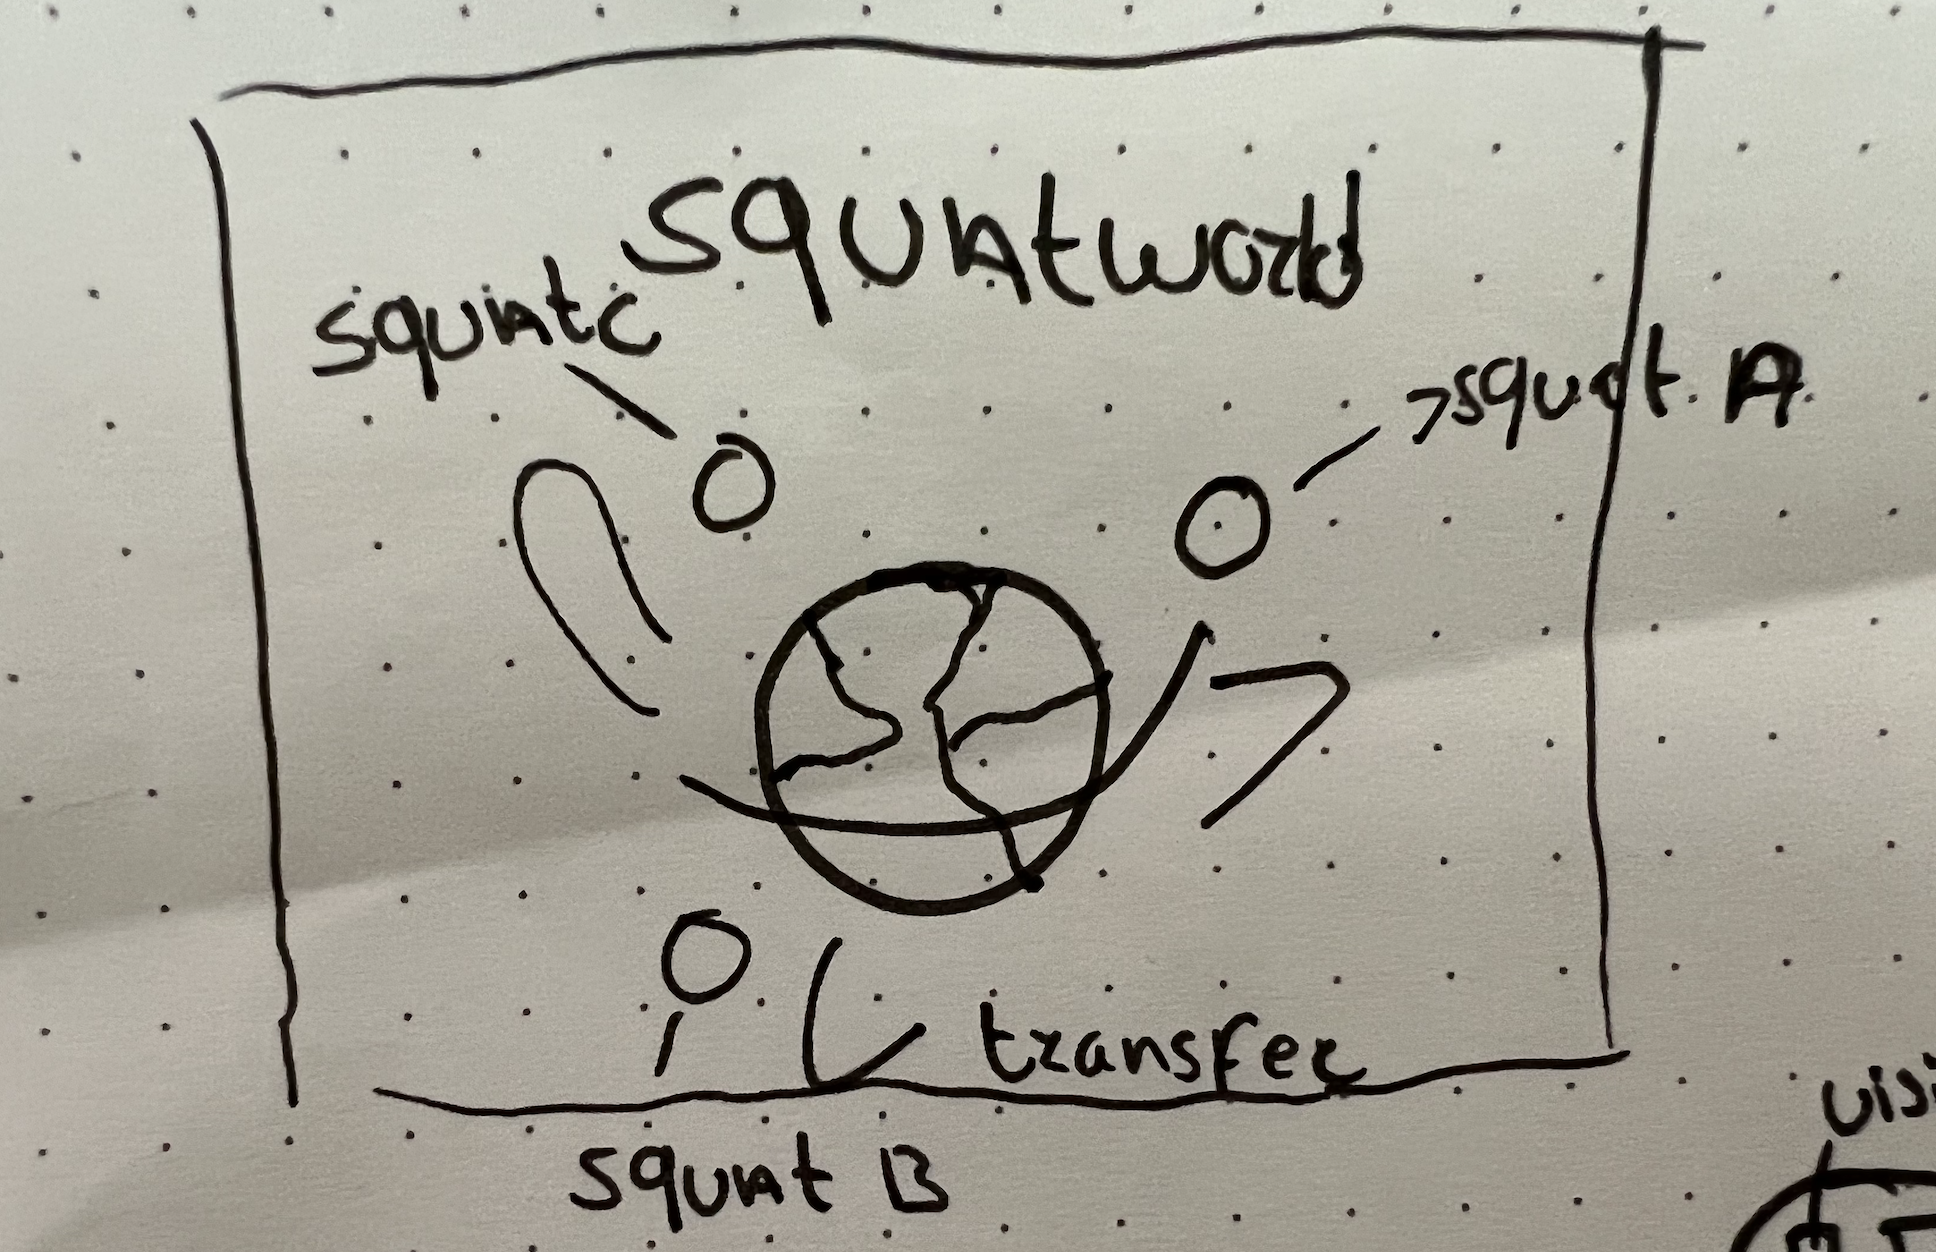 squntworld
squnt C
squnt A
transfer
squnt B
visi